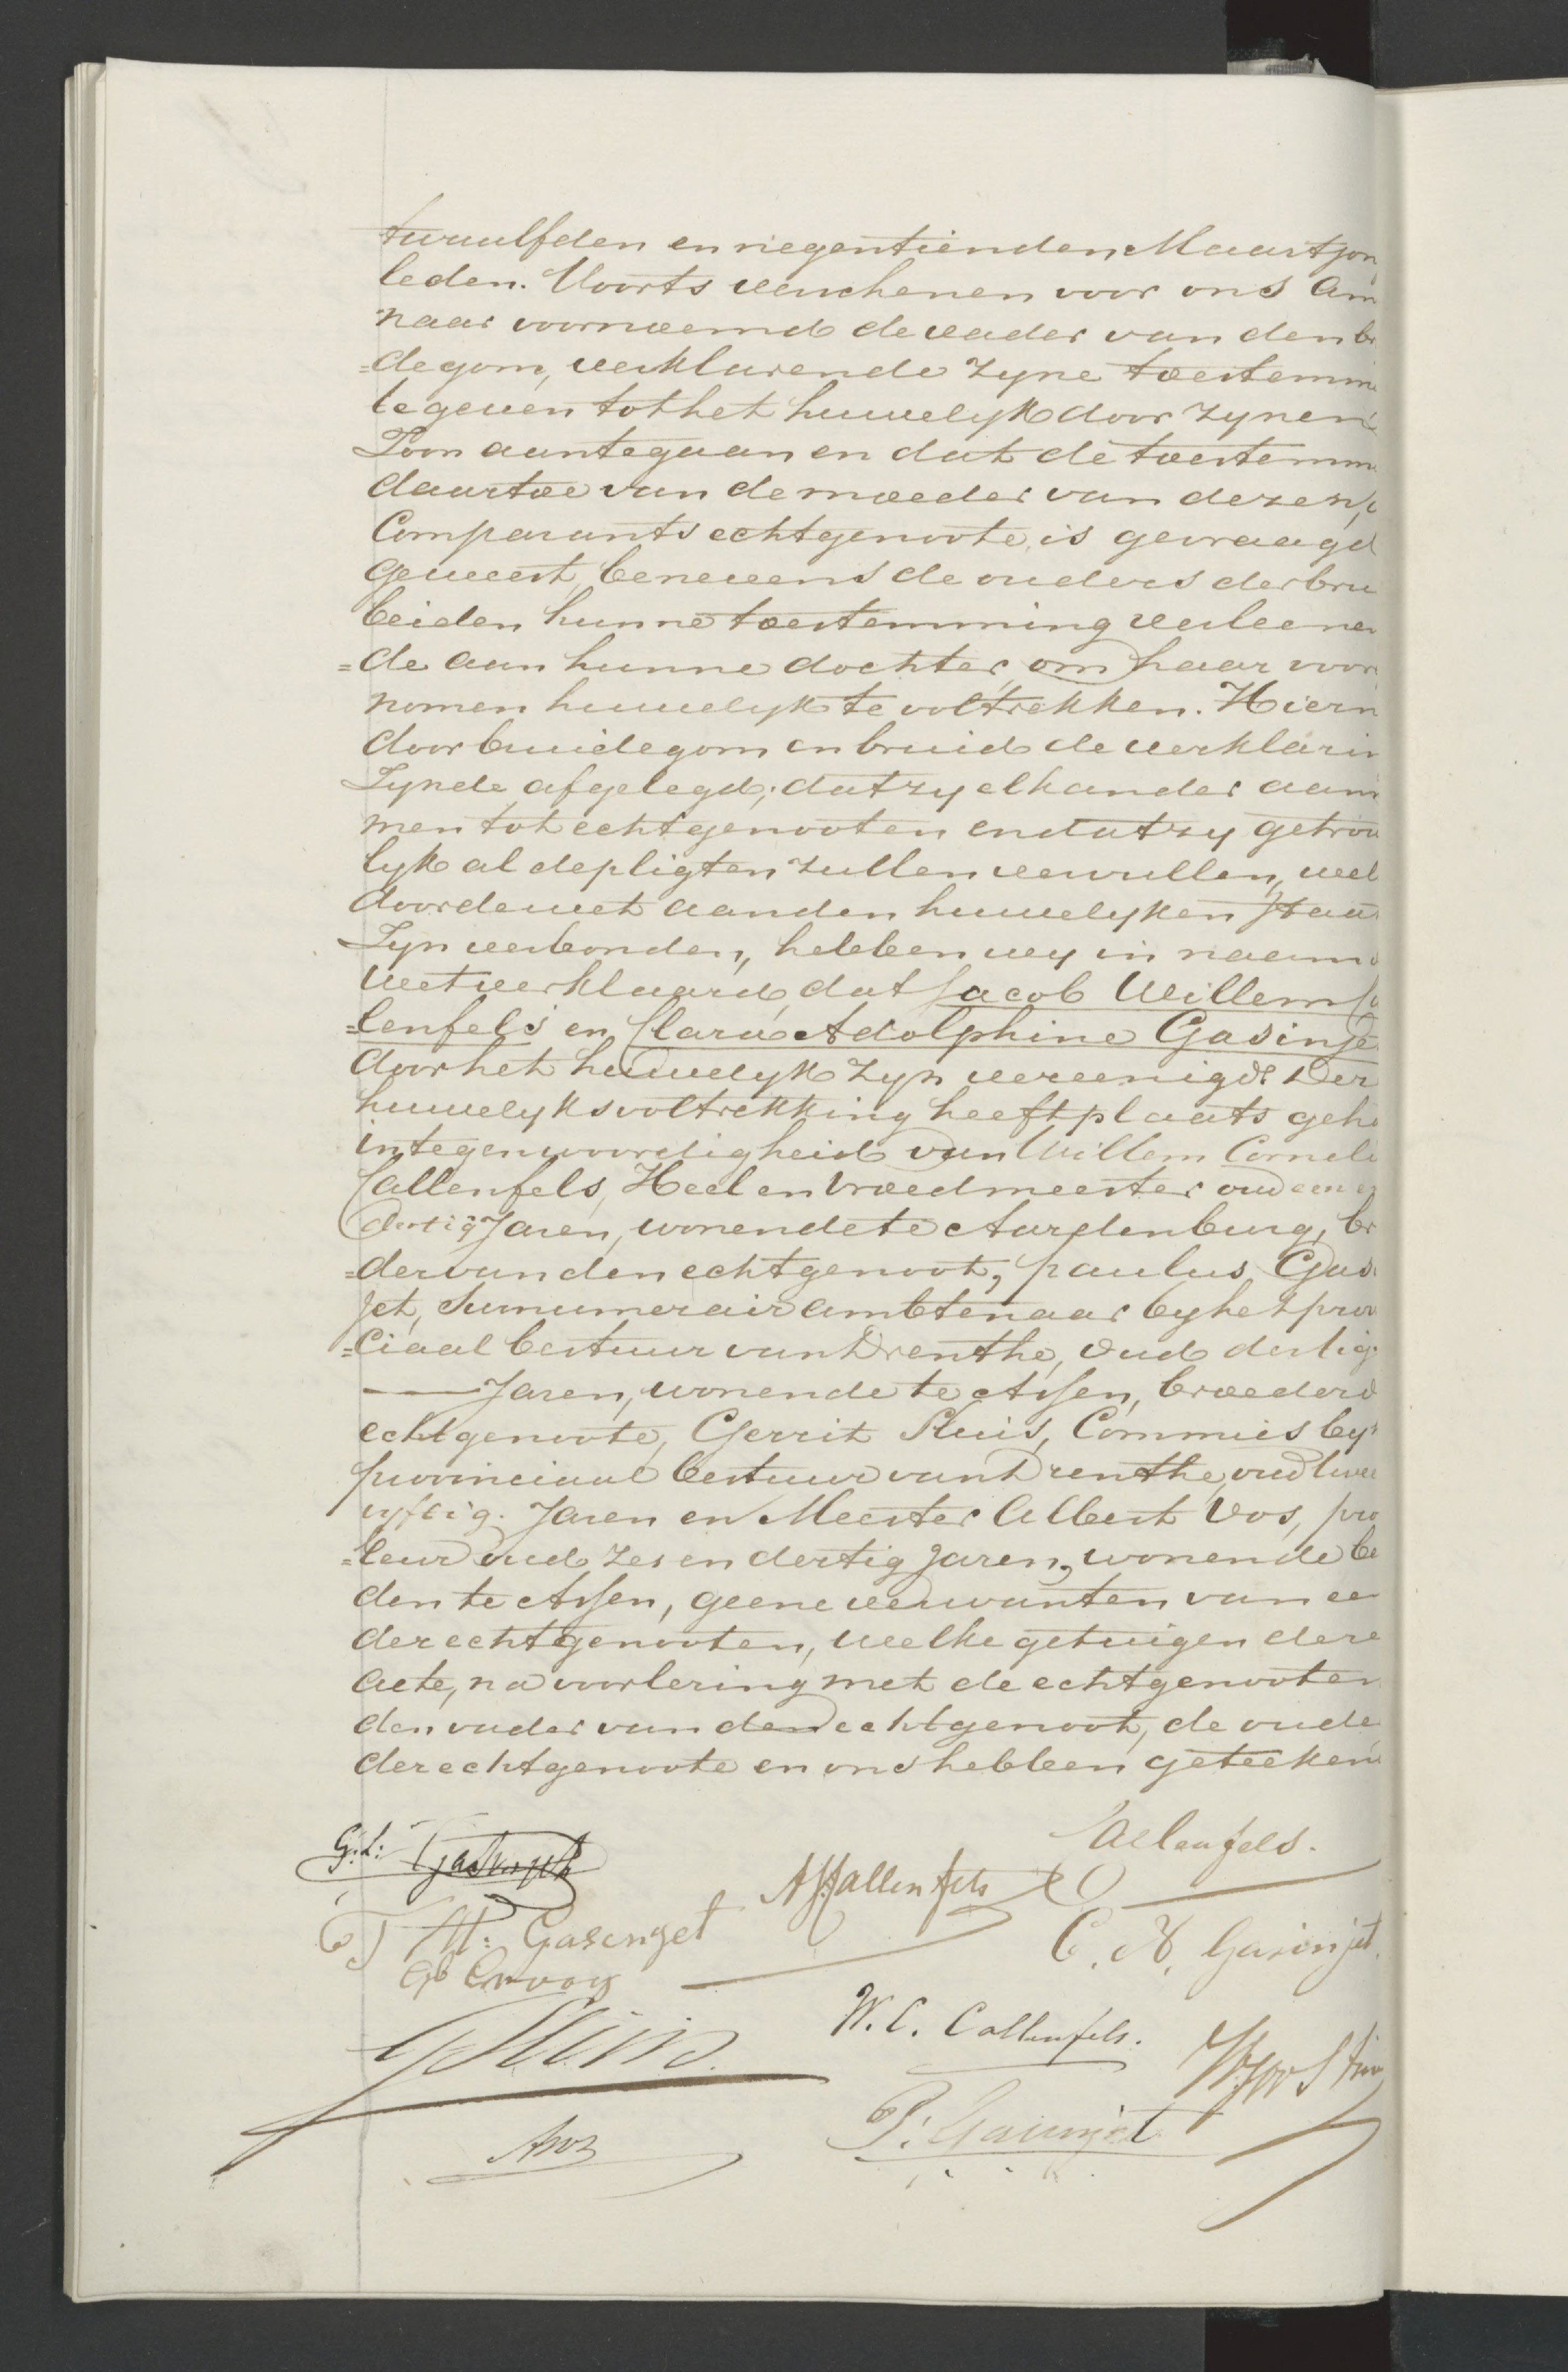 twaalfden en negentienden Maart jon
leden. Voorts verschenen voor ons Am
naar voornoemd de vader van den br
=degom, verklarende zyne toestemmi
te geven tot het huwelyk door zynen
Zoon aantegaan en dat de toestemm
daartoe van de moeder van dezen,
Comparants echtgenoote, is gevraagd
geweest, benevens de ouders der bru
beiden hunne toestemming verleenen
=de aan hunne dochter, om haar voor
nomen huwelyk te voltrekken. Hiern
door bruidegom en bruid de verklarin
Zynde afgelegd, dat zy elkander aan
men tot echtgenooten en dat zy getrou
lyk al de pligten zullen vervullen, wel
door de wet aan den huwelyken staa
Zyn verbonden, hebben wy in naam
Wet verklaard, dat Jacob Willem C
=lenfels en Clara Adolphine Gasinje
door het huwelyk zyn vereenigd. Der
huwelyksvoltrekking heeft plaats geha
in tegenwoordigheid van Willem Corneli
Callenfels, Heel en Vroedmeester oud een en
dertig Jaren, wonende te Aardenburg, br
=der van den echtgenoot, paulus Gas
jet, Surnumerair ambtenaar by het prov
=ciaal bestuur van Drenthe, oud dertig
Jaren, wonende te Assen, broeder d
echtgenoote, Gerrit Sluis, Commies by
provinciaal bestuur van Drenthe, oud twee
vyftig. Jaren en Meester Albert Vos, pro
=leur oud zes en dertig Jaren, wonende be
den te Assen, geene verwanten van ee
der echtgenooten, welke getuigen deze
acte, na voorlezing met de echtgenooten
den vader van den echtgenoot, de oude
der echtgenoote en ons hebben geteekend
G.L: Gasinjet
Callenfels.
A Callenfels
M: Gasinjet
C. A. Gasinjet.
W. C. Callenfels.
G Sluis.
P. Gasinjet
A Vos